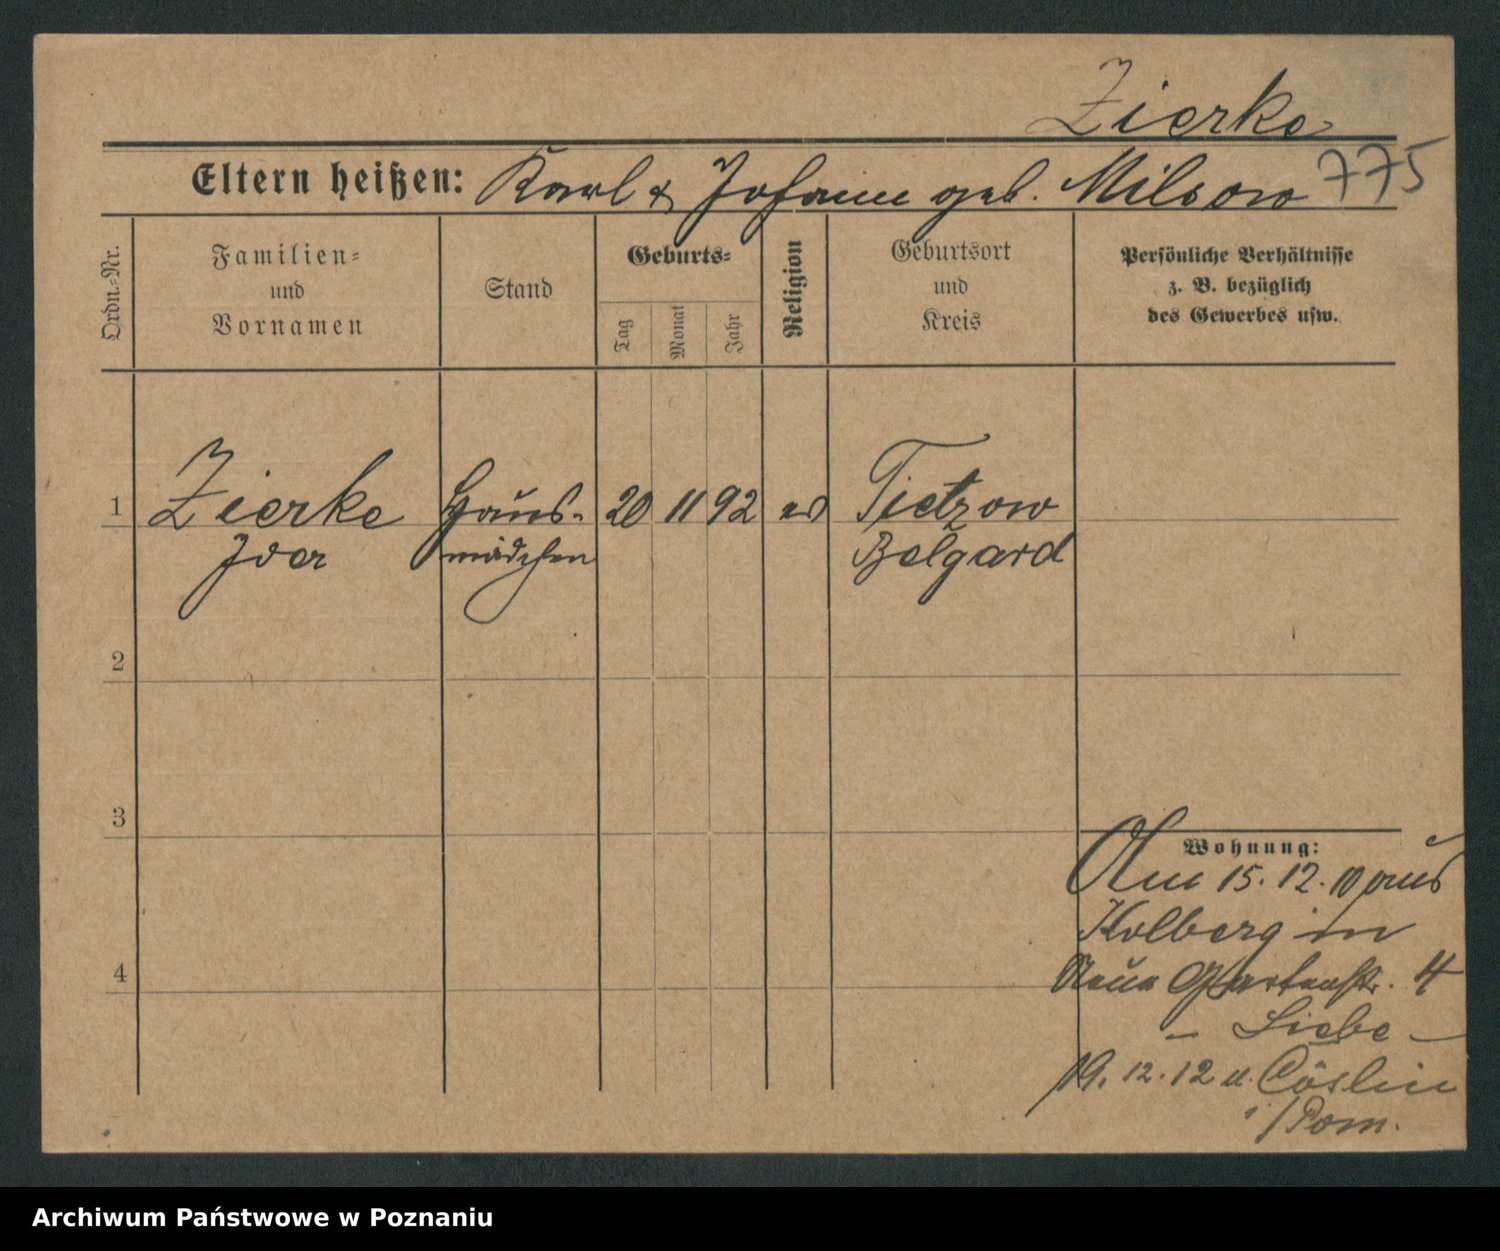 Zierke
Eltern heißen: Karl & Johann geb. Milsow 775
Ordn.-Nr.
Familien-
und
Vornamen
Stand
Geburts-
Tag
Monat
Jahr
Religion
Geburtsort
und
Kreis
Persönliche Verhältnisse
z. B. bezüglich
des Gewerbes usw.
1 Zierke Haus- 20 11 92 ev Tietzow
Ida mädchen Belgard
2
3
4
Wohnung:
Am 15. 12. 10 aus
Kolberg in
Neue Gartenstr. 4
– Liebe –
19. 12. 12 n. Cöslin
i/Pom.
Archiwum Państwowe w Poznaniu